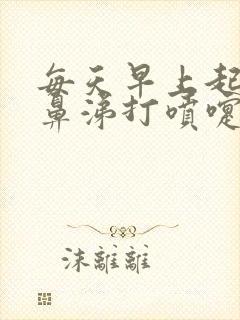 每天早上起
鼻涕打噴嚏
沫離離